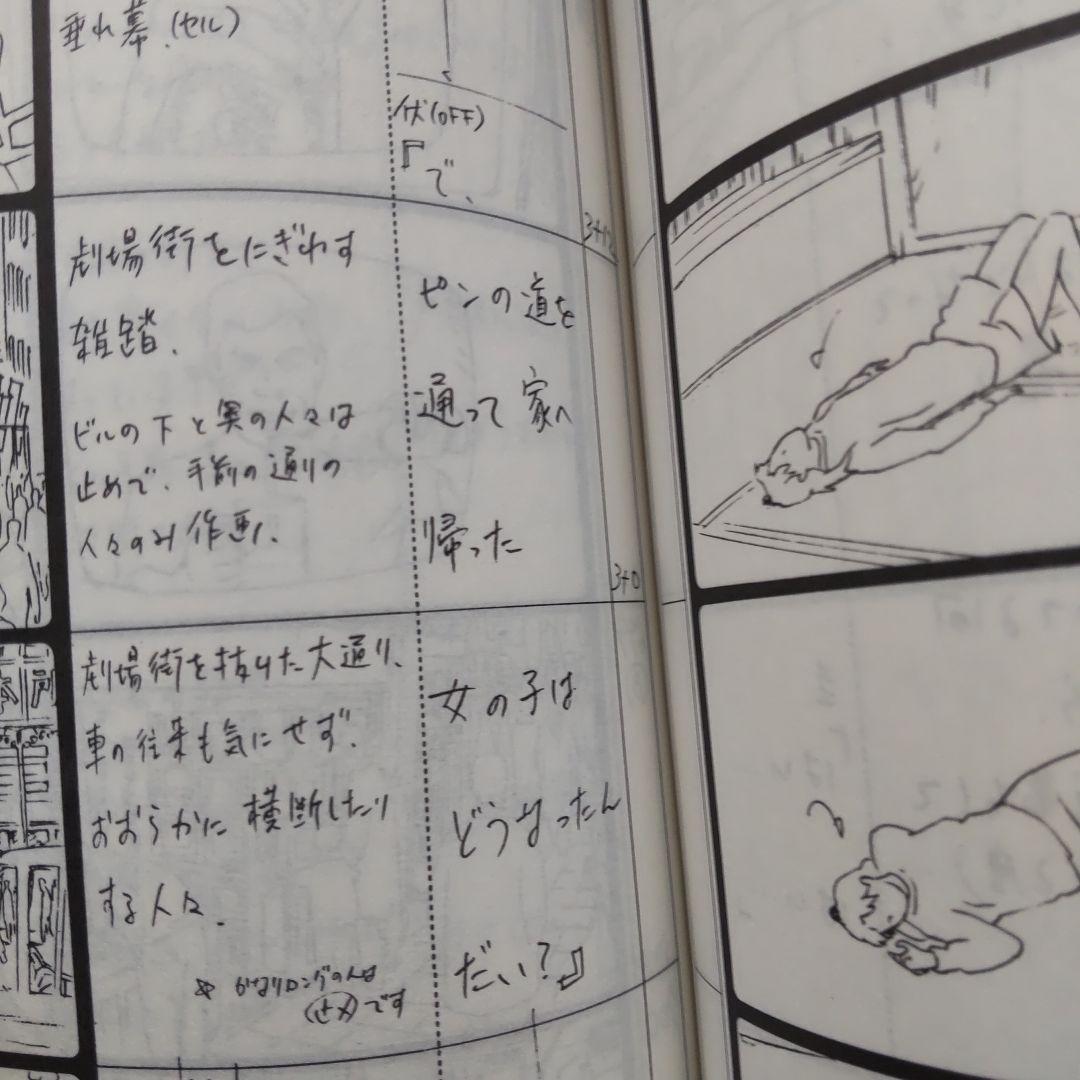 垂れ幕.(セル)
伏(OFF)
『で、
3+12
劇場街をにぎわす
雑踏.
ビルの下と奥の人々は
止めで、手前の通りの
人々のみ作画、
ピンの道を
通って家へ
帰った
3+0
劇場街を抜けた大通り、
車の往来も気にせず.
おおらかに横断したり
する人々.
☆かなりロングの人は
止メです
女の子は
どうなったん
だい?』